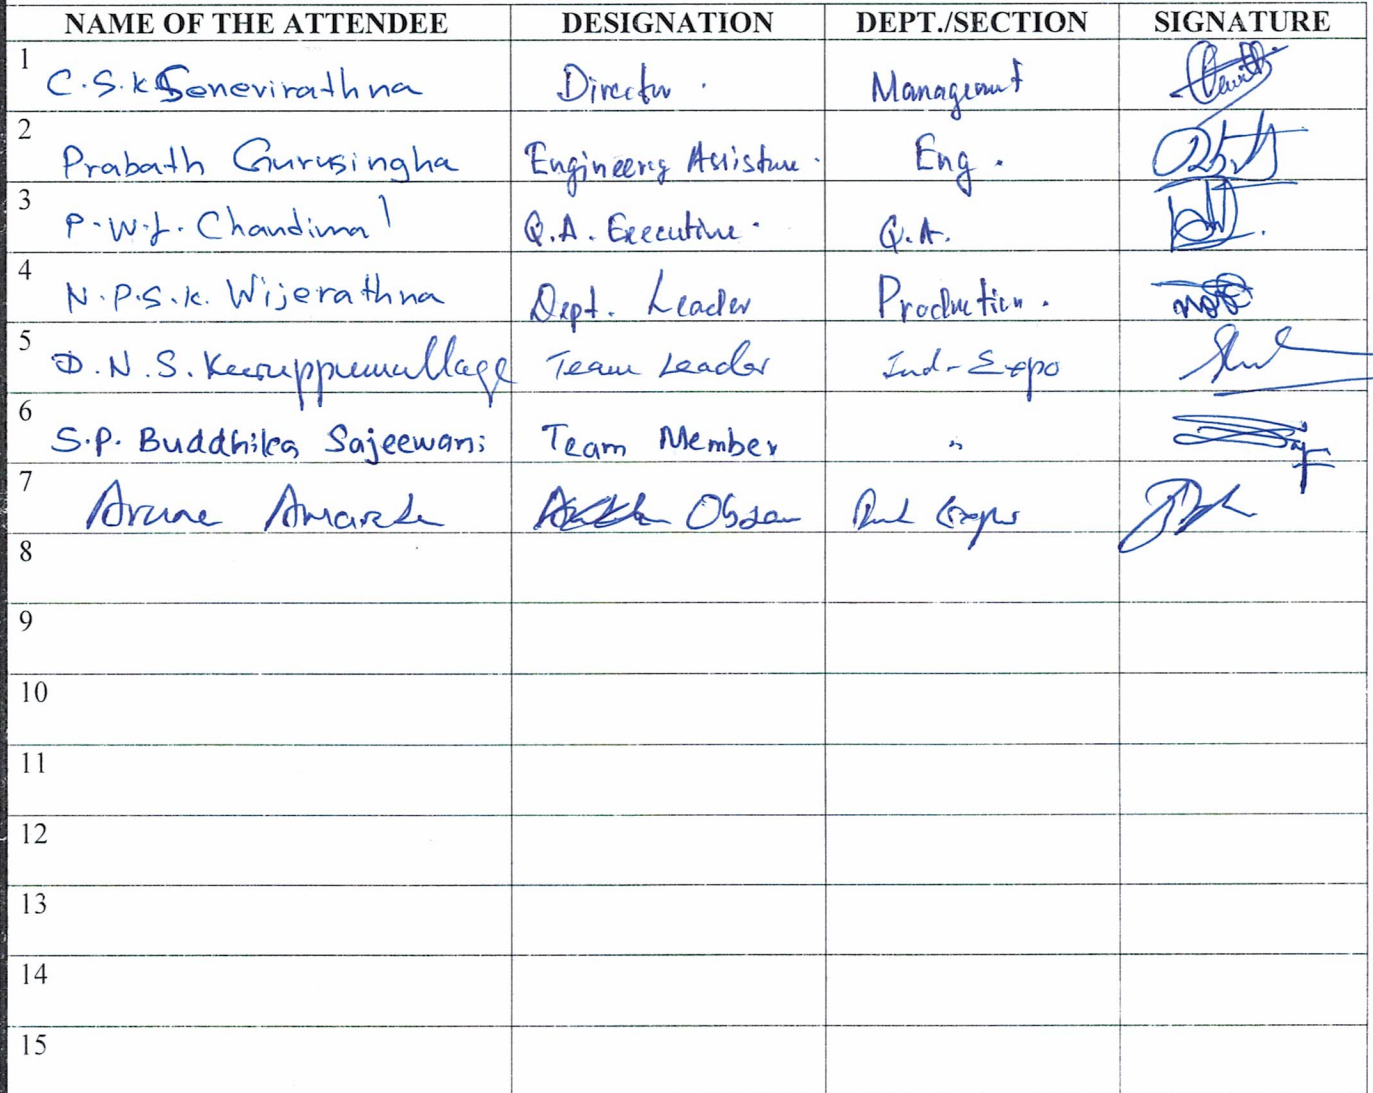 NAME OF THE ATTENDEE DESIGNATION DEPT./SECTION SIGNATURE
1 C.S.K Senevirathna Director. Management
2 Prabath Gurusingha Engineering Assistance. Eng.
3 P.W.L. Chandimal Q.A. Executive. Q.A.
4 N.P.S.K. Wijerathna Dept. Leader Production.
5 D.N.S. Kuruppumullage Team Leader Ind-Expo
6 S.P. Buddhika Sajeewani Team Member "
7 Aruna
8
9
10
11
12
13
14
15